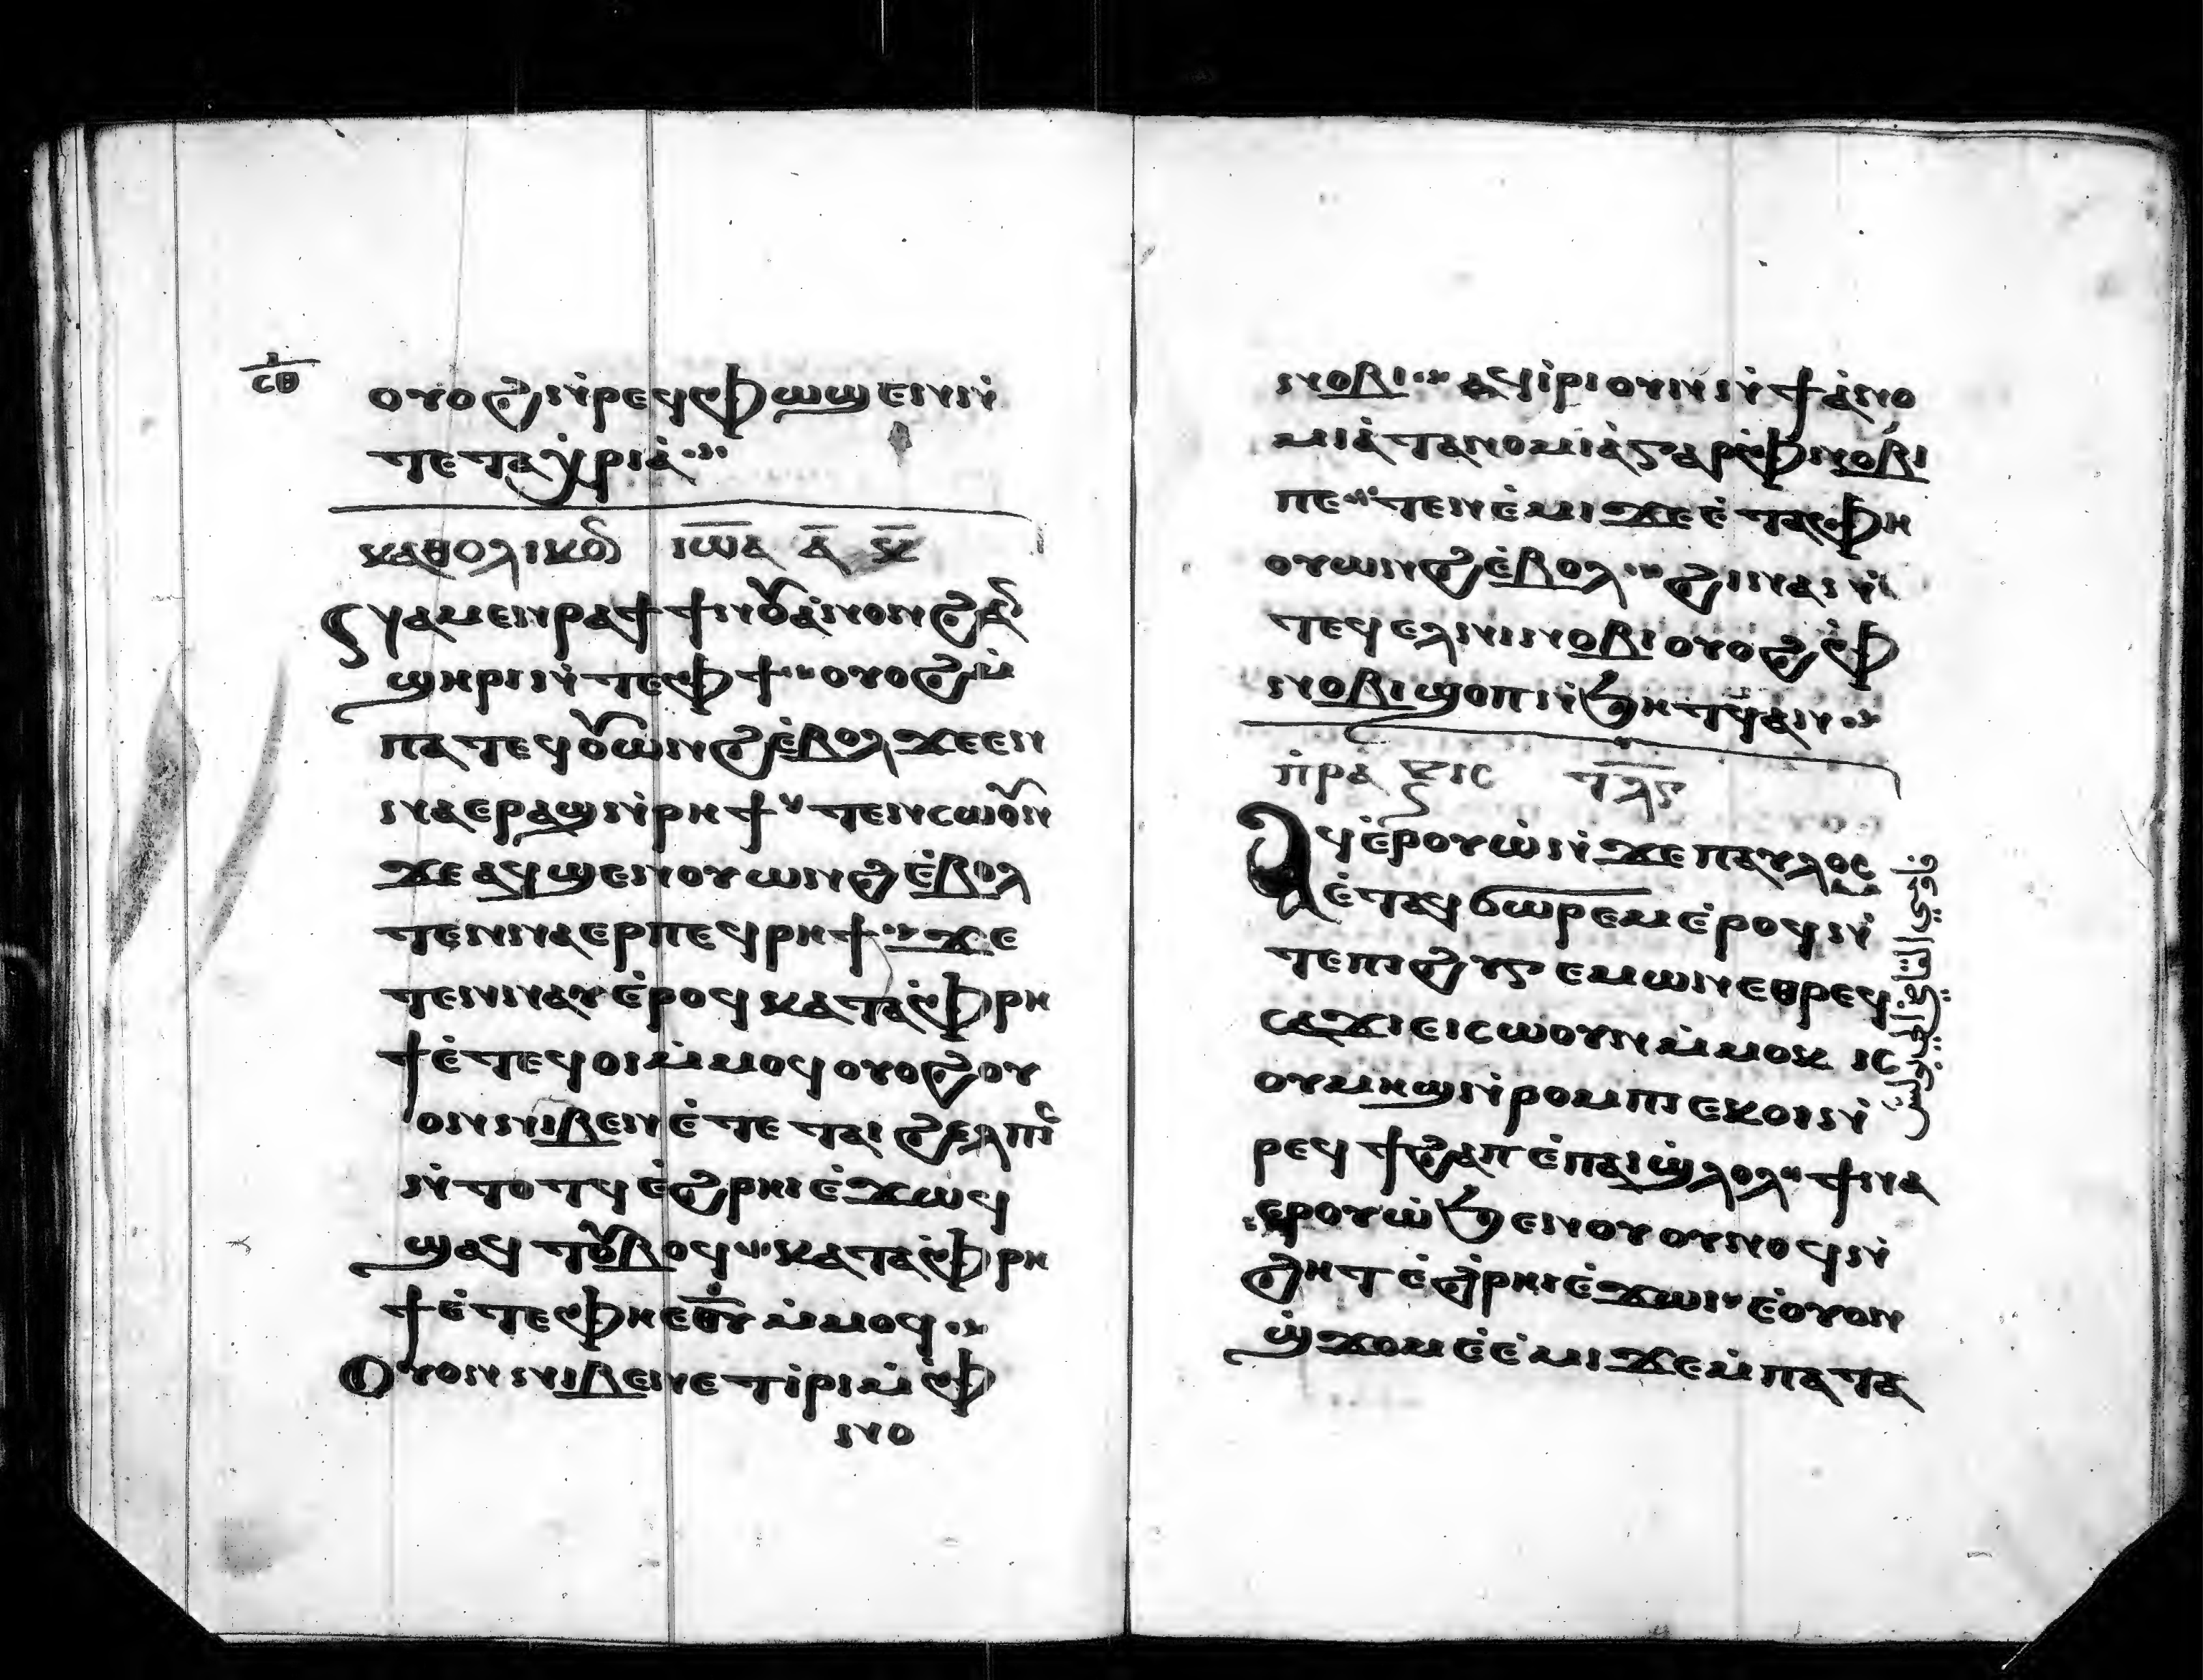 ⲥ̅ⲑ̅
ⲟⲩⲟϩ ⲛ̇ⲣⲉϥⲫⲱϣⲉⲛ ⲛ̇
ⲧⲉ ⲧⲁϥⲣⲓⲁ̇
ⲕⲁⲑⲟⲗⲓⲕⲟⲛ ⲓⲱ̅ⲁ ⲁ̅ ⲕ̅
ⲛⲁⲙⲉⲛⲣⲁϯ ϯⲛⲟⲩ ⲁ̇ⲛⲟⲛ ϩⲁⲛ
ϣⲏⲣⲓ ⲛ̇ⲧⲉ ⲫϯ ⲟⲩⲟϩ ⲙ̇
ⲡⲁⲧⲉϥⲟⲩⲱⲛϩ ⲉ̇ⲃⲟⲗ ϫⲉ ⲉⲛ
ⲛⲁⲉⲣ ⲁϣ ⲛ̇ⲣⲏϯ ⲧⲉⲛⲥⲱⲟⲩⲛ
ϫⲉ ⲁϥϣⲉⲛⲟⲩⲱⲛϩ ⲉ̇ⲃⲟⲗ
ⲧⲉⲛⲛⲁⲉⲣ ⲡⲉϥⲣⲏϯ ϫⲉ
ⲧⲉⲛⲛⲁⲩ ⲉ̇ⲣⲟϥ ⲕⲁⲧⲁ ⲫ̇ⲣⲏ
ϯ ⲉ̇ⲧⲉϥⲟⲓ ⲙ̇ⲙⲟϥ ⲟⲩⲟϩ ⲟⲩ
ⲟⲛ ⲛⲓⲃⲉⲛ ⲉ̇ⲧⲉ ⲧⲁⲓ ϩⲉⲗⲡⲓⲥ
ⲛ̇ⲧⲟⲧϥ ⲉ̇ϩⲣⲏⲓ ⲉ̇ϫⲱϥ
ϣⲁϥⲧⲟⲩⲃⲟϥ ⲕⲁⲧⲁ ⲫ̇ⲣⲏ
ϯ ⲉ̇ⲧⲉ ⲫⲏ ⲉⲑⲩ ⲙ̇ⲙⲟϥ
ⲟⲩⲟⲛ ⲛⲓⲃⲉⲛ ⲉⲧⲓ̇ⲣⲓ ⲙ̇ⲫ̇
ⲛⲟ
ⲛⲟⲃⲓ ⲁϥⲓ̇ⲣⲓ ⲟⲛ ⲛ̇ϯⲁ̇ⲛⲟ
ⲙⲓⲁ̇ ⲧⲁⲛⲟⲙⲓⲁ̇ ⲅⲁⲣ ⲫ̇ⲛⲟⲃⲓ
ⲡⲉ ⲧⲉⲛⲉ̇ⲙⲓ ϫⲉ ⲉ̇ⲧⲁ ⲫⲏ
ⲟⲩⲱⲛϩ ⲉ̇ⲃⲟⲗ ϩⲓⲛⲁ ⲛ̇
ⲧⲉϥⲉⲗ ⲛⲓⲛⲟⲃⲓ ⲟⲩⲟϩ ⲫ̇
ⲛⲟⲃⲓ ϣⲟⲡ ⲛ̇ϧⲏⲧϥ ⲁⲛ
ⲡ̇ⲣⲁⲝⲓⲥ ⲧ̅ⲗ̅ⲋ̅
ⲁϥⲉ̇ⲣⲟⲩⲱ̇ ⲛ̇ϫⲉ ⲡⲁⲩⲗⲟⲥ
ⲉ̇ⲧⲁϥϭⲱⲣⲉⲙ ⲉ̇ⲣⲟϥ ⲛ̇
ϫⲉ ⲡⲓϩⲩⲅⲉⲙⲱⲛ ⲉⲑⲣⲉϥ
ⲥⲁϫⲓ ⲉⲓⲥⲱⲟⲩⲛ ⲙ̇ⲙⲟⲕ ⲓⲥ
ⲟⲩⲙⲏϣ ⲛ̇ⲣⲟⲙⲡⲓ ⲉⲕⲟⲓ ⲛ̇
ⲣⲉϥϯϩⲁⲡ ⲉ̇ⲡⲁⲓϣ̇ⲗⲟⲗ ϯⲛⲁ
ⲉⲣⲟⲩⲱ̇ ϧⲉⲛ ⲟⲩⲟⲩⲛⲟϥ ⲛ̇
ϩⲏⲧ ⲉ̇ϩ̇ⲣⲏⲓ ⲉ̇ϫⲱⲓ ⲉ̇ⲟⲩⲟⲛ
ϣ̇ϫⲟⲙ ⲉ̇ⲉ̇ⲙⲓ ϫⲉ ⲙ̇ⲡⲁⲧⲁ